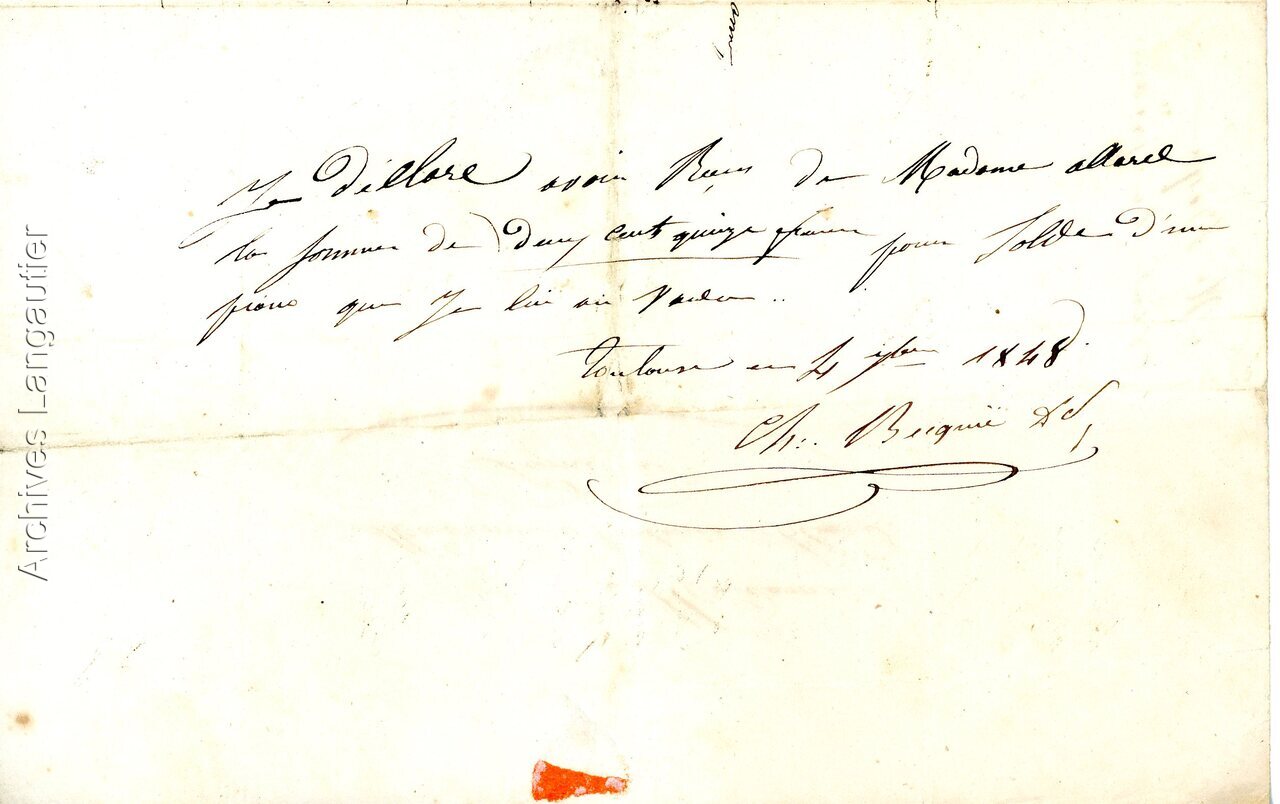 Je déclare avoir Reçu de Madame allarel
la somme de deux cents quinze francs pour Solde d'un
piano que Je lui ai Vendu..
Toulouse en 4 1848
Ch: Becquié
Archives Langautier